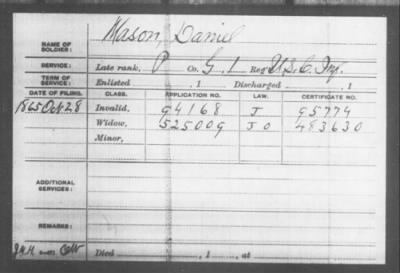 Mason, Daniel
NAME OF SOLDIER:
SERVICE: Late rank, P Co. G, 1 Reg't U.S.C. Inf.
TERM OF SERVICE: Enlisted , 1 Discharged , 1
DATE OF FILING. CLASS. APPLICATION NO. LAW. CERTIFICATE NO.
1865 Oct 28 Invalid, 94168 J 95774
Widow, 525009 J O 483630
Minor,
ADDITIONAL SERVICES:
REMARKS:
Died , 1 , at